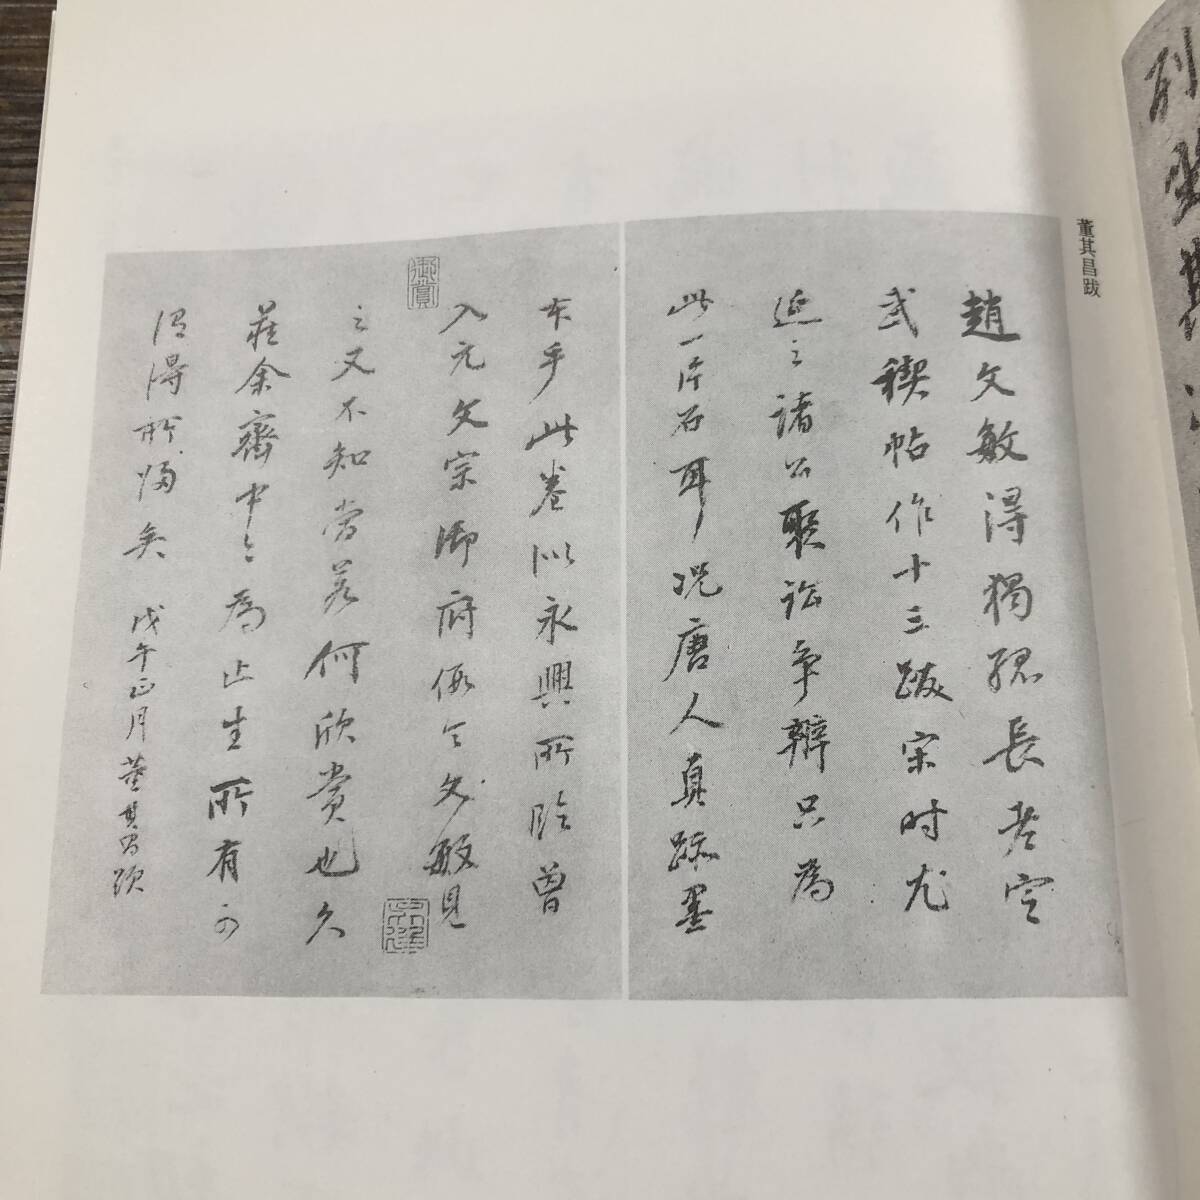 董其昌跋
趙文敏得獨孤長老定
武禊帖作十三跋宋时尤
延之諸公聚訟争辨只為
此一片石耳況唐人真跡墨
本乎此卷似永興所臨曾
入元文宗御府假令文敏見
之又不知當若何欣賞也久
藏余齋中今為止生所有可
謂得所歸矣 戊午正月董其昌題
御賞
列坐其